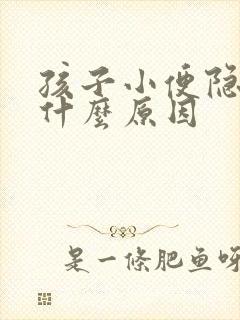 孩子小便隐
什麼原因
是一條肥鱼呀